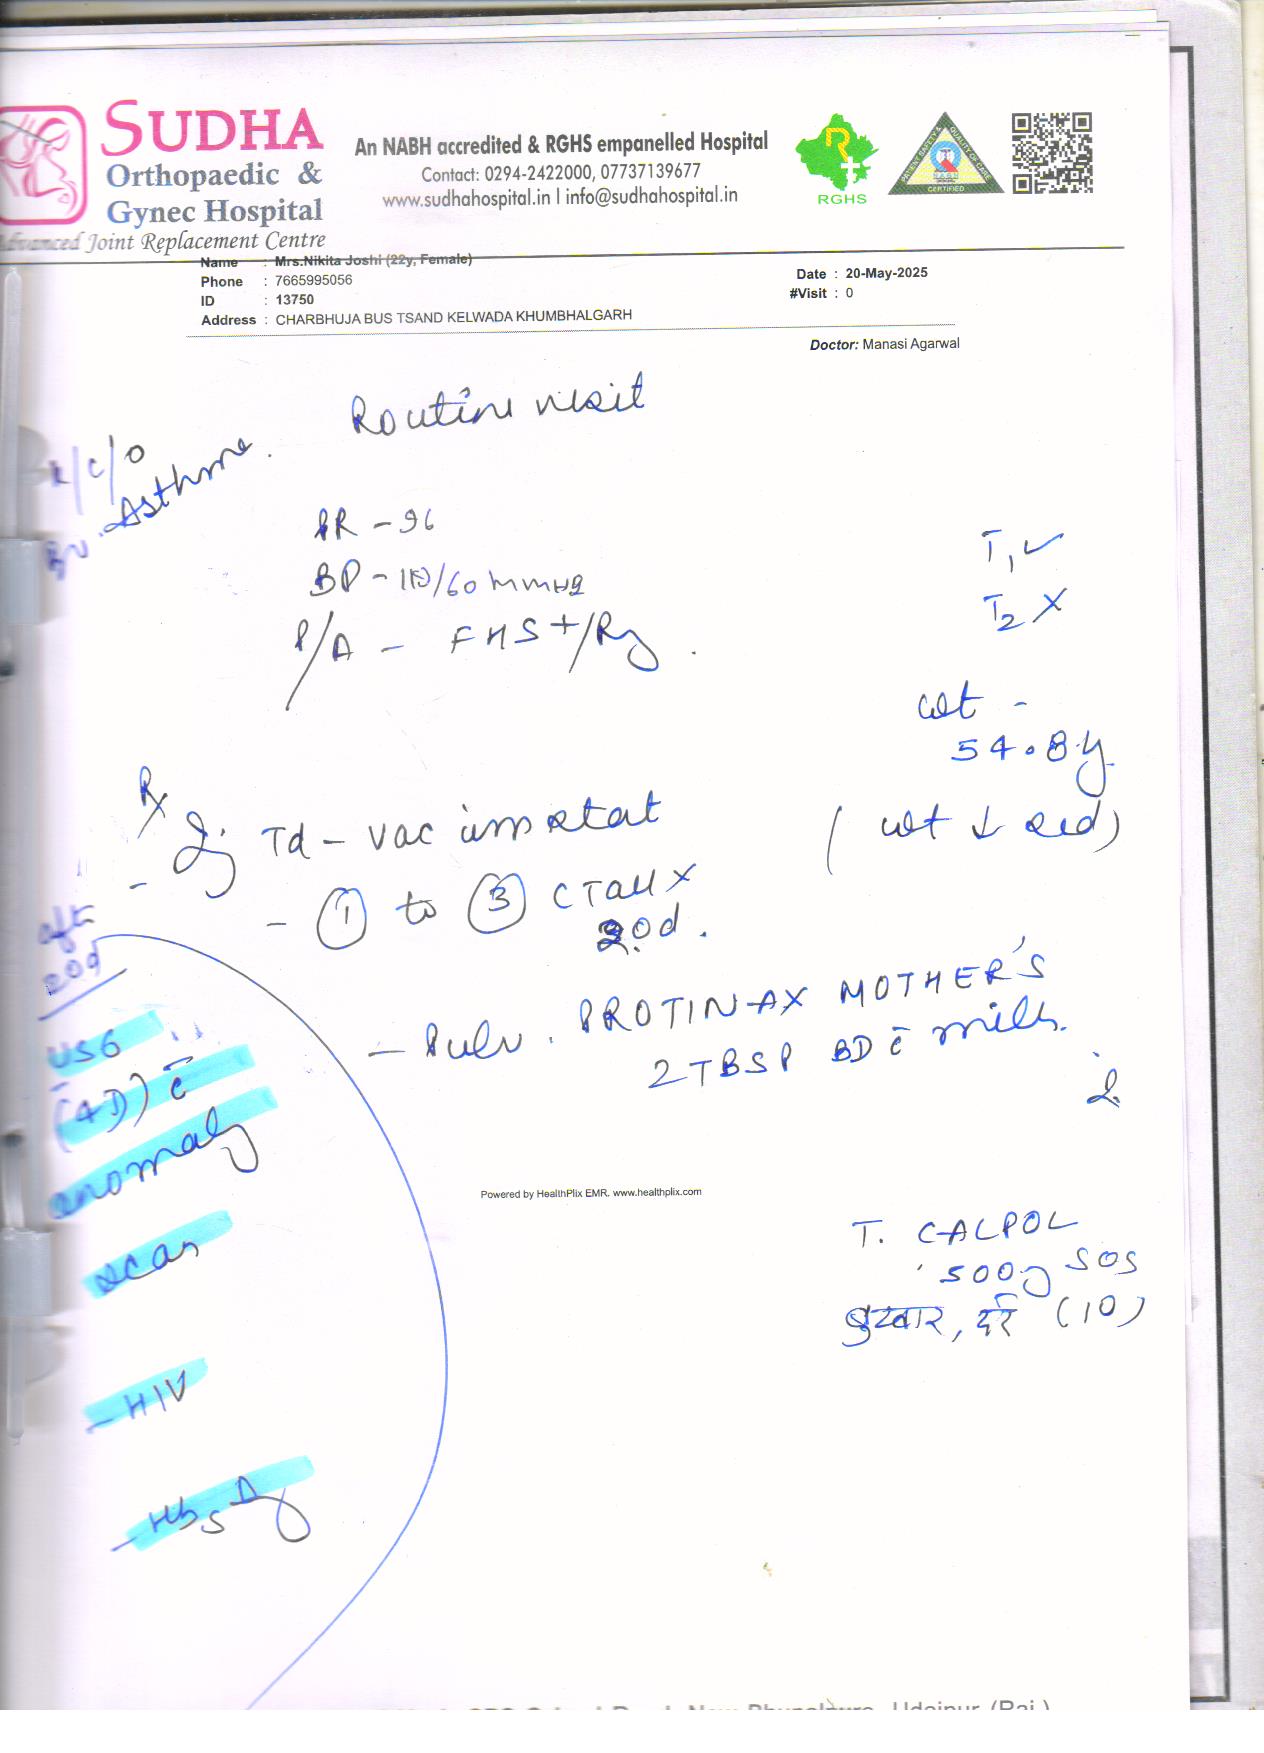 SUDHA
Orthopaedic &
Gynec Hospital
Advanced Joint Replacement Centre
An NABH accredited & RGHS empanelled Hospital
Contact: 0294-2422000, 07737139677
www.sudhahospital.in | info@sudhahospital.in
RGHS
PATIENT SAFETY & QUALITY OF CARE
NABH
CERTIFIED
Name : Mrs.Nikita Joshi (22y, Female)
Phone : 7665995056
ID : 13750
Address : CHARBHUJA BUS TSAND KELWADA KHUMBHALGARH
Date : 20-May-2025
#Visit : 0
Doctor: Manasi Agarwal
Routine visit
K/C/O
Br. Asthma.
PR - 96
BP - 110/60 mmHg
P/A - FHS +/Rg.
T1 ✓
T2 X
wt -
54.8
(wt ↓ )
Rx
- Inj Td-vac im stat
- ① to ③ CTall X
20d.
- Pulv. PROTIN-AX MOTHER'S
2 TBSP BD c̄ milk.
aft
20d
USG
(4D) c̄
anomaly
scan
- HIV
- HbsAg
Powered by HealthPlix EMR. www.healthplix.com
T. CALPOL
500g SOS
बुखार, दर्द (10)
Udaipur (Raj.)